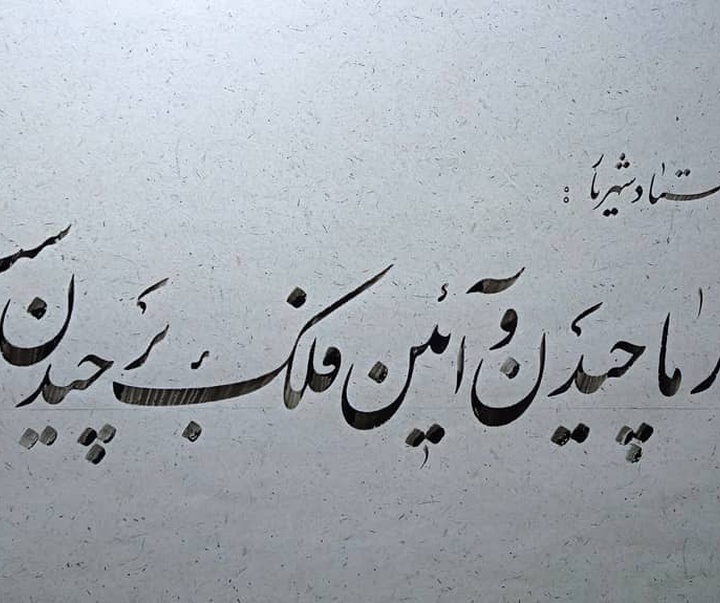 ستاد شهریار :
ما چیدن و آئین فلک برچیدن